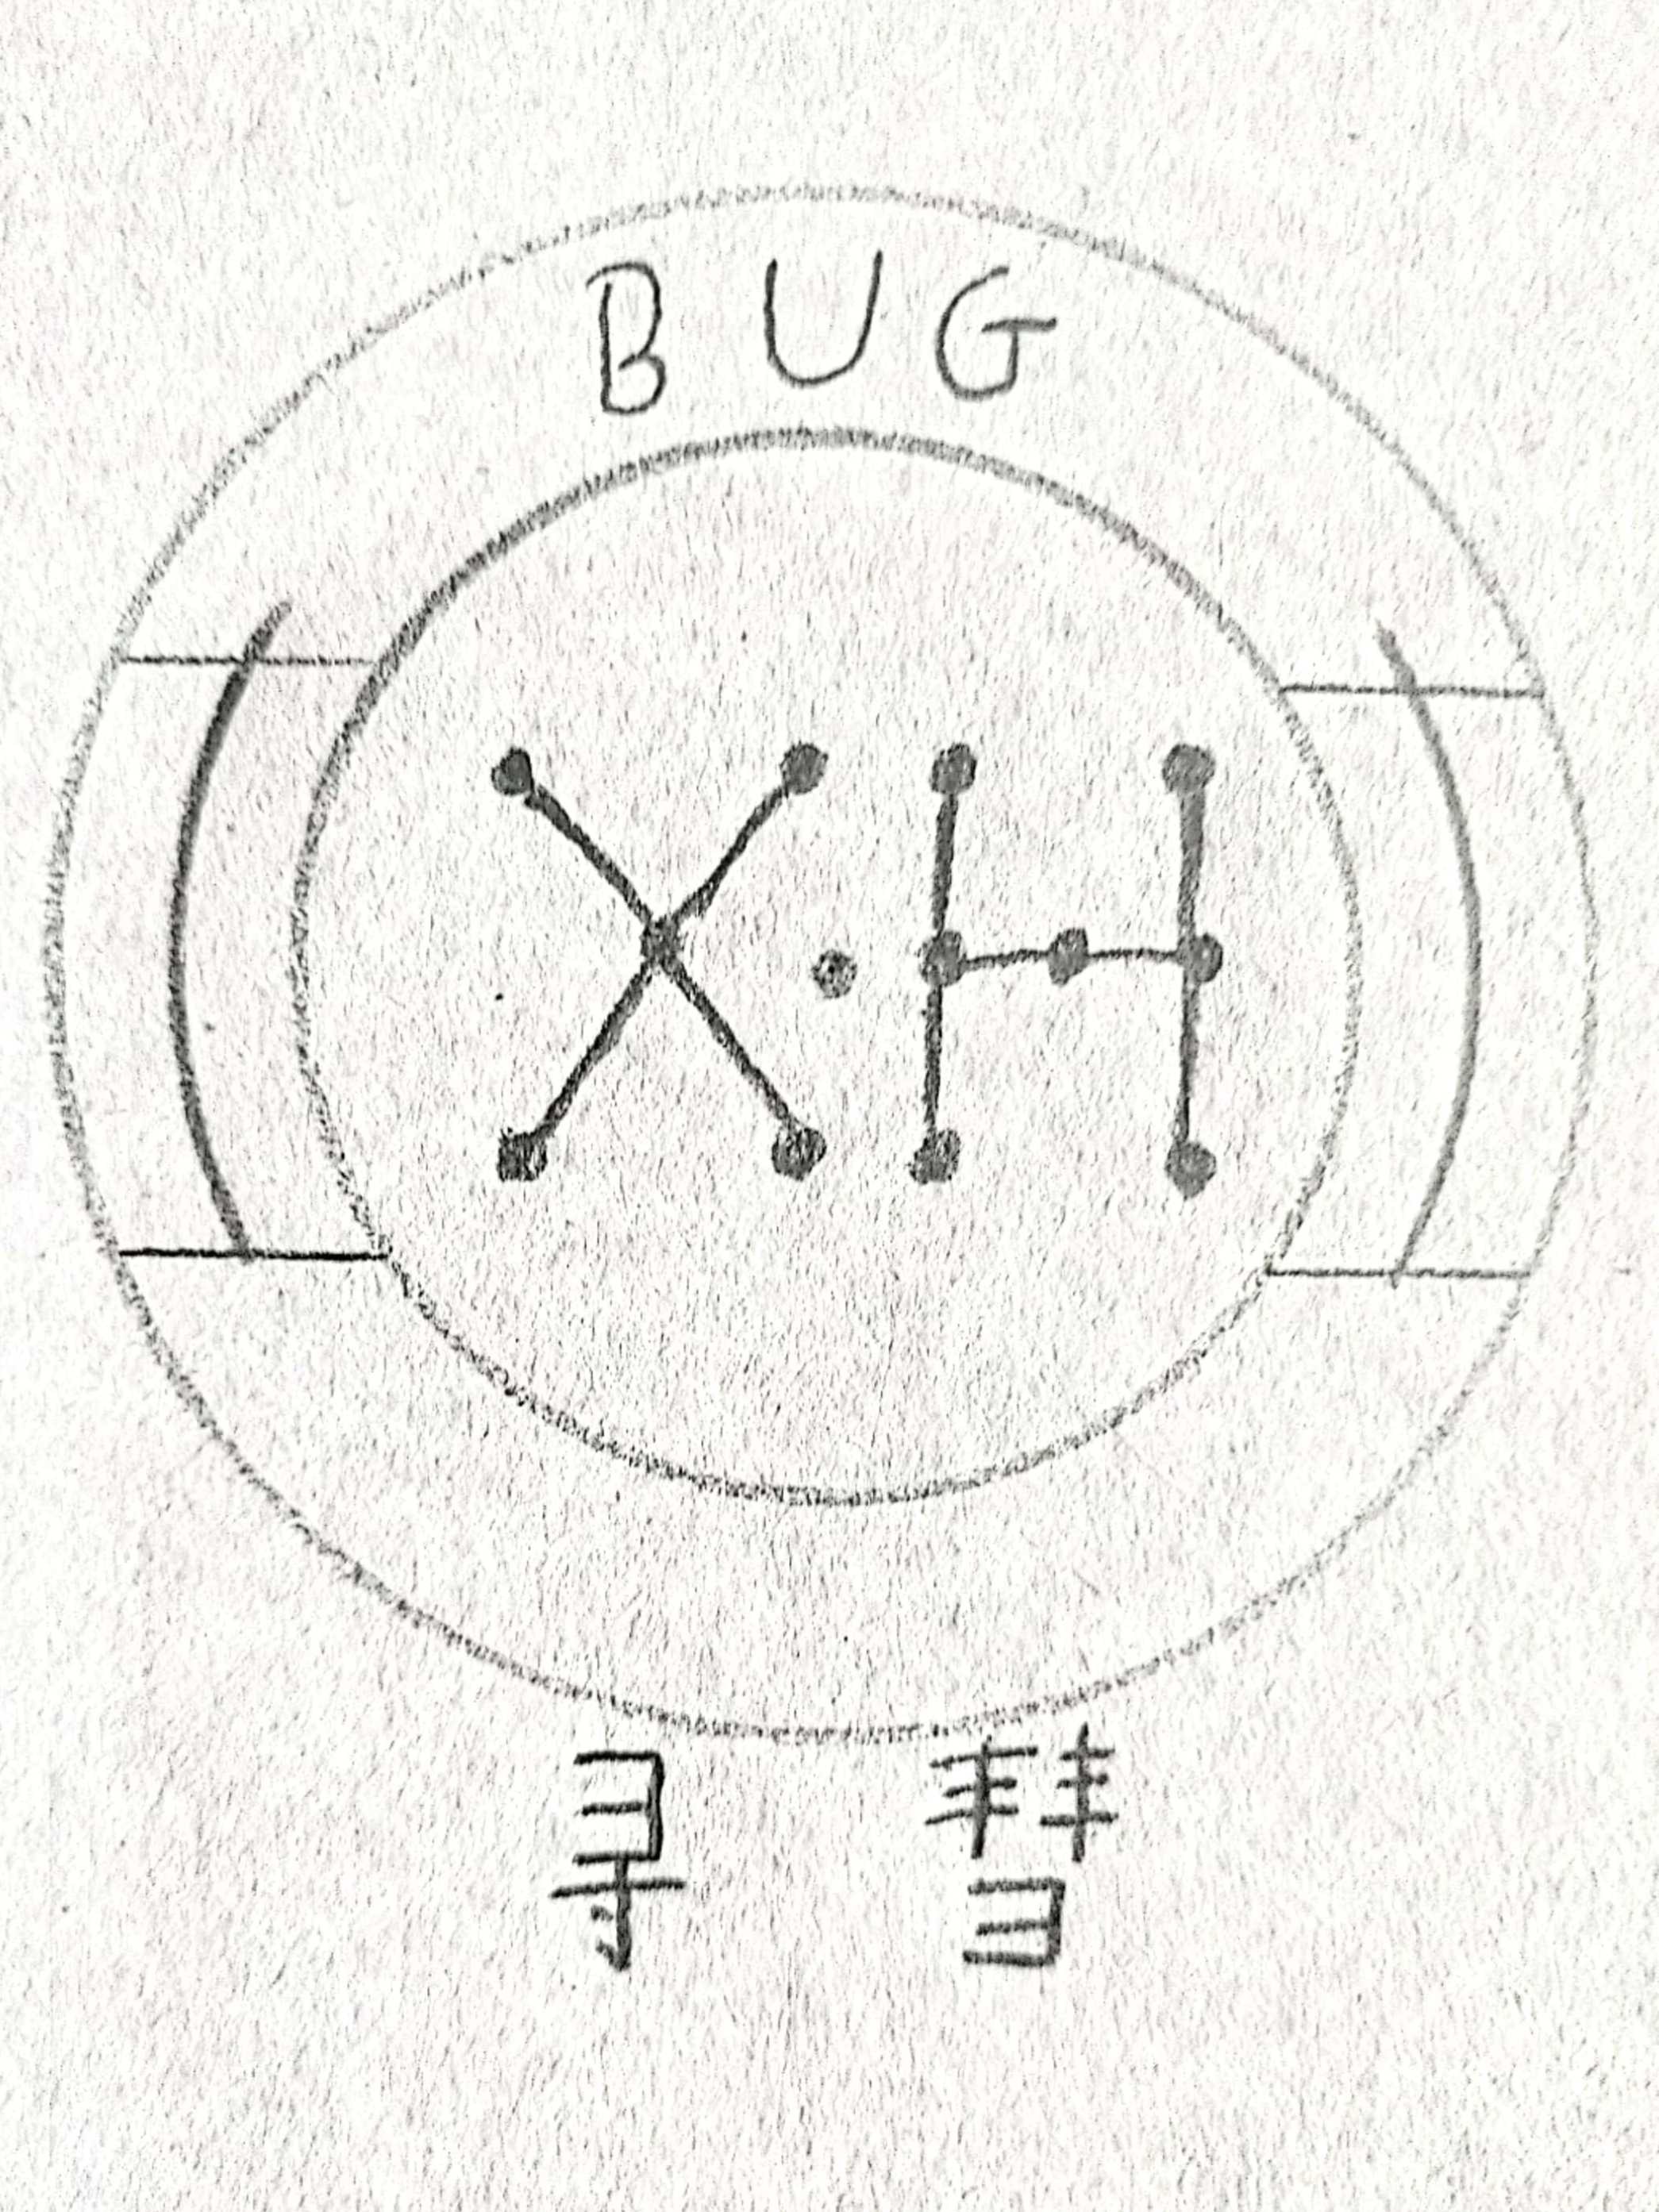 BUG
X·H
寻 彗